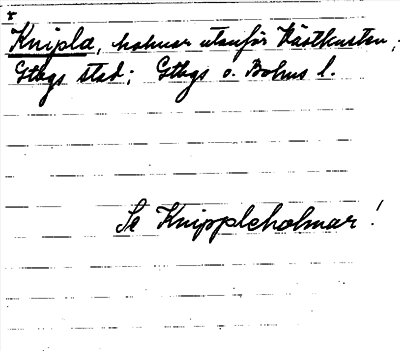 Knipla, holmar utanför Västkusten,
Gtbgs stad; Gtbgs o. Bohus l.
Se Knippleholmar!